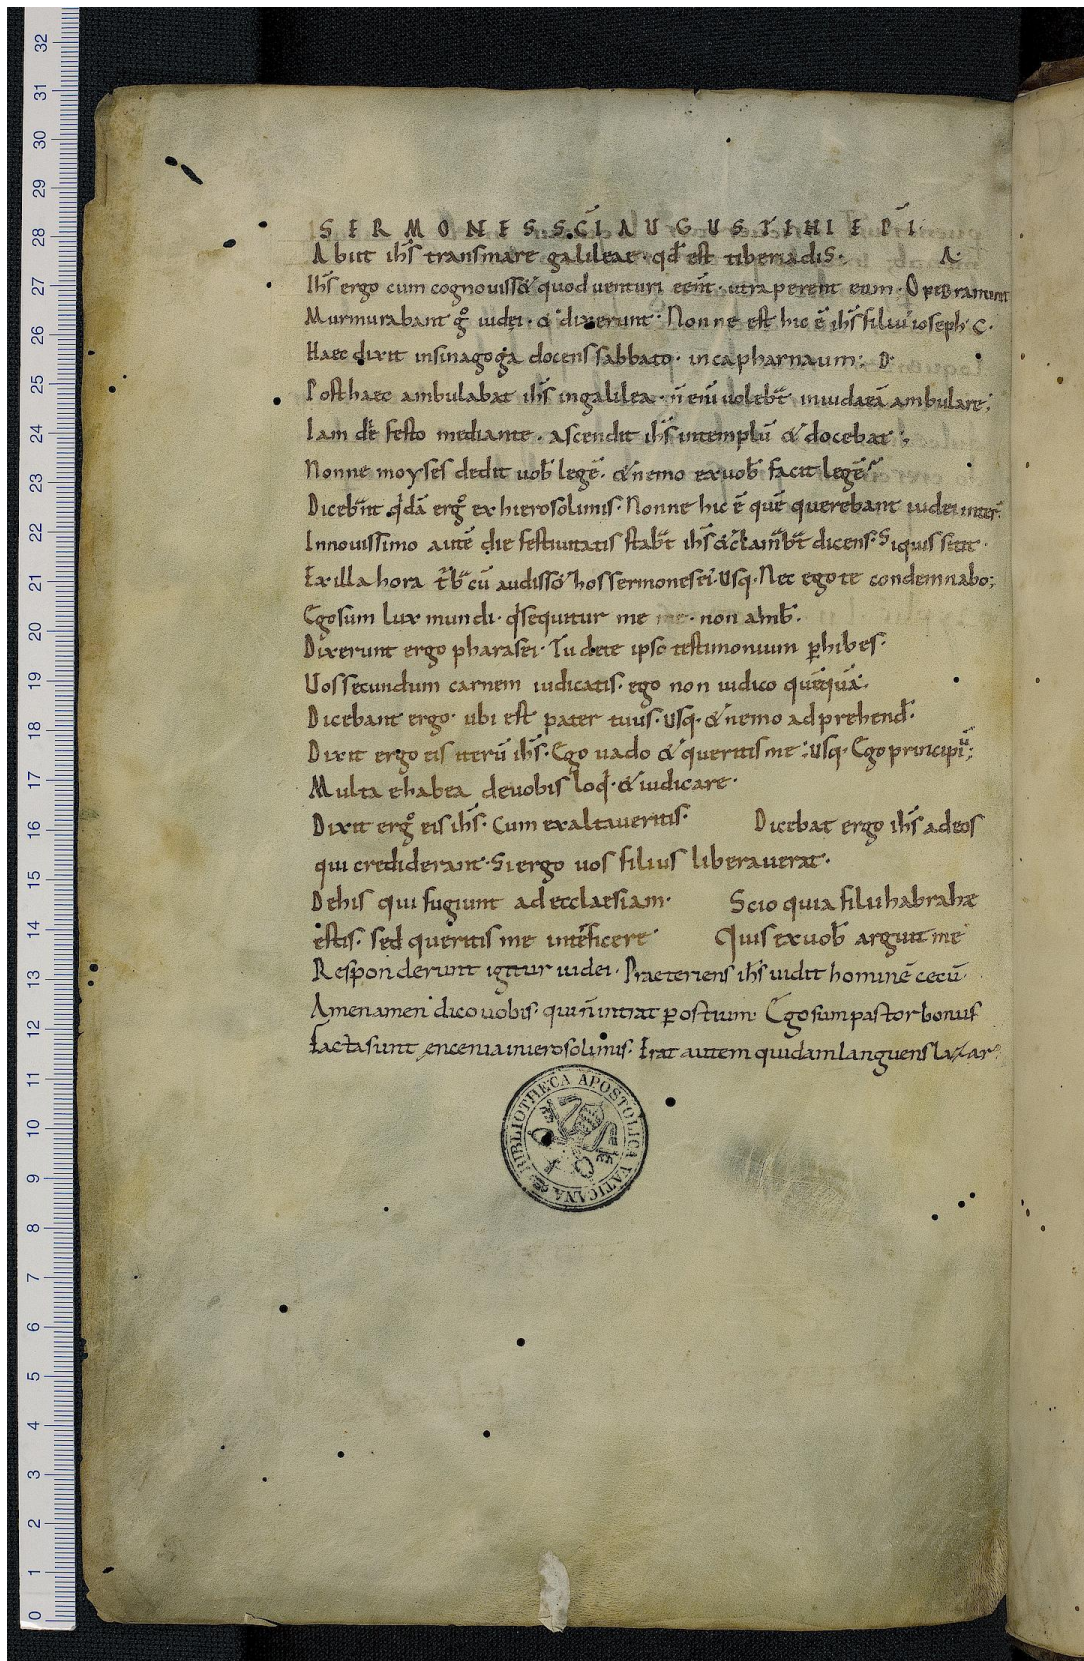 SERMONES SCĪ AUGUSTINI EPĪ
Abiit ihs̄ transmare galileae · qd̄ est tiberiadis · A·
Ihs̄ ergo cum cognouiss& quod venturi eēnt · utraperent eum · Operamini
Murmurabant gͦ iudei · & dixerunt · Nonne est hic ē ihs̄ filiu' ioseph · C ·
Haec dixit insinagoga docens sabbato · incapharnaum : D·
Posthaec ambulabat ihs̄ ingalilea · n̄ enī uoleb̄t iniudaeā ambulare ;
Iam dē festo mediante · ascendit ihs̄ intemplū & docebat ;
Nonne moyses dedit uob̄ legē · & nemo exuob̄ facit legē
Diceb̄nt qdā ergͦ ex hierosolimis · Nonne hic ē quē querebant iudei interf̄
Innouissimo autē die festiuitatis stab̄t ihs̄ & clamab̄t dicens · Siquis sitit ·
Exilla hora cū audiss& hos sermones ei · Usq · Nec ego te condemnabo ;
Egosum lux mundi · q̄ sequitur me · non amb̄ ·
Dixerunt ergo pharasei · Tu dete ipso testimonium ꝑhibes ·
Uos secundum carnem iudicatis · ego non iudico quēquā ·
Dicebant ergo · ubi est pater tuus · usq · & nemo adprehend̄ ·
Dixit ergo eis iterū ihs̄ · Ego uado & queritis me ; Usq · Ego principiū ;
Multa ehabea deuobis loq̄ · & iudicare ·
Dixit ergͦ eis ihs̄ · Cum exaltaueritis · Dicebat ergo ihs̄ adeos
qui crediderant · Si ergo uos filius liberauerat ·
Dehis qui fugiunt adecclaesiam · Scio quia filii habrahæ
estis · sed queritis me interficere · Quis exuob̄ arguit me
Responderunt igitur iudei · Praeteriens ihs̄ uidit hominē cecū ·
Amenamen dico uobis · qui n̄ intrat ꝑ ostium · Ego sum pastor bonus
Facta sunt encenia inierosolimis · Erat autem quidam languens lazar
BIBLIOTHECA APOSTOLICA VATICANA
32
31
30
29
28
27
26
25
24
23
22
21
20
19
18
17
16
15
14
13
12
11
10
9
8
7
6
5
4
3
2
1
0